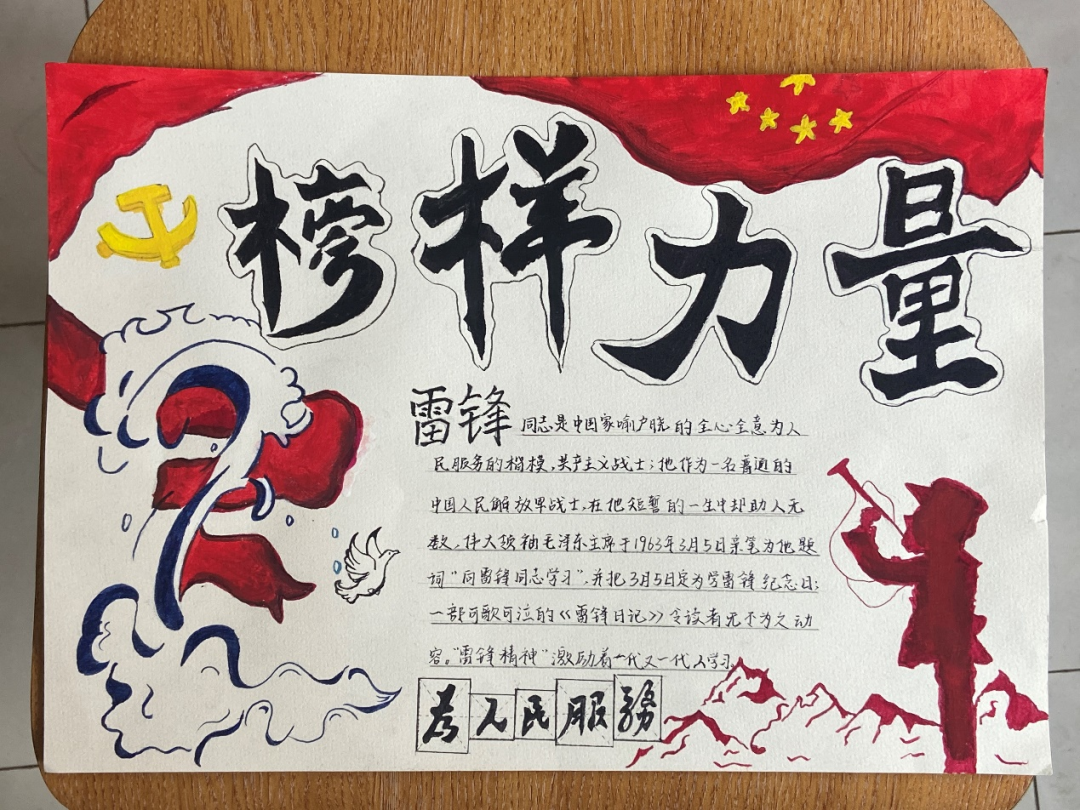 榜样力量
雷锋同志是中国家喻户晓的全心全意为人
民服务的楷模,共产主义战士;他作为一名普通的
中国人民解放军战士,在他短暂的一生中却助人无
数,伟大领袖毛泽东主席于1963年3月5日亲笔为他题
词“向雷锋同志学习”,并把3月5日定为学雷锋纪念日;
一部可歌可泣的《雷锋日记》令读者无不为之动
容。“雷锋精神”激励着一代又一代人学习。
为人民服務